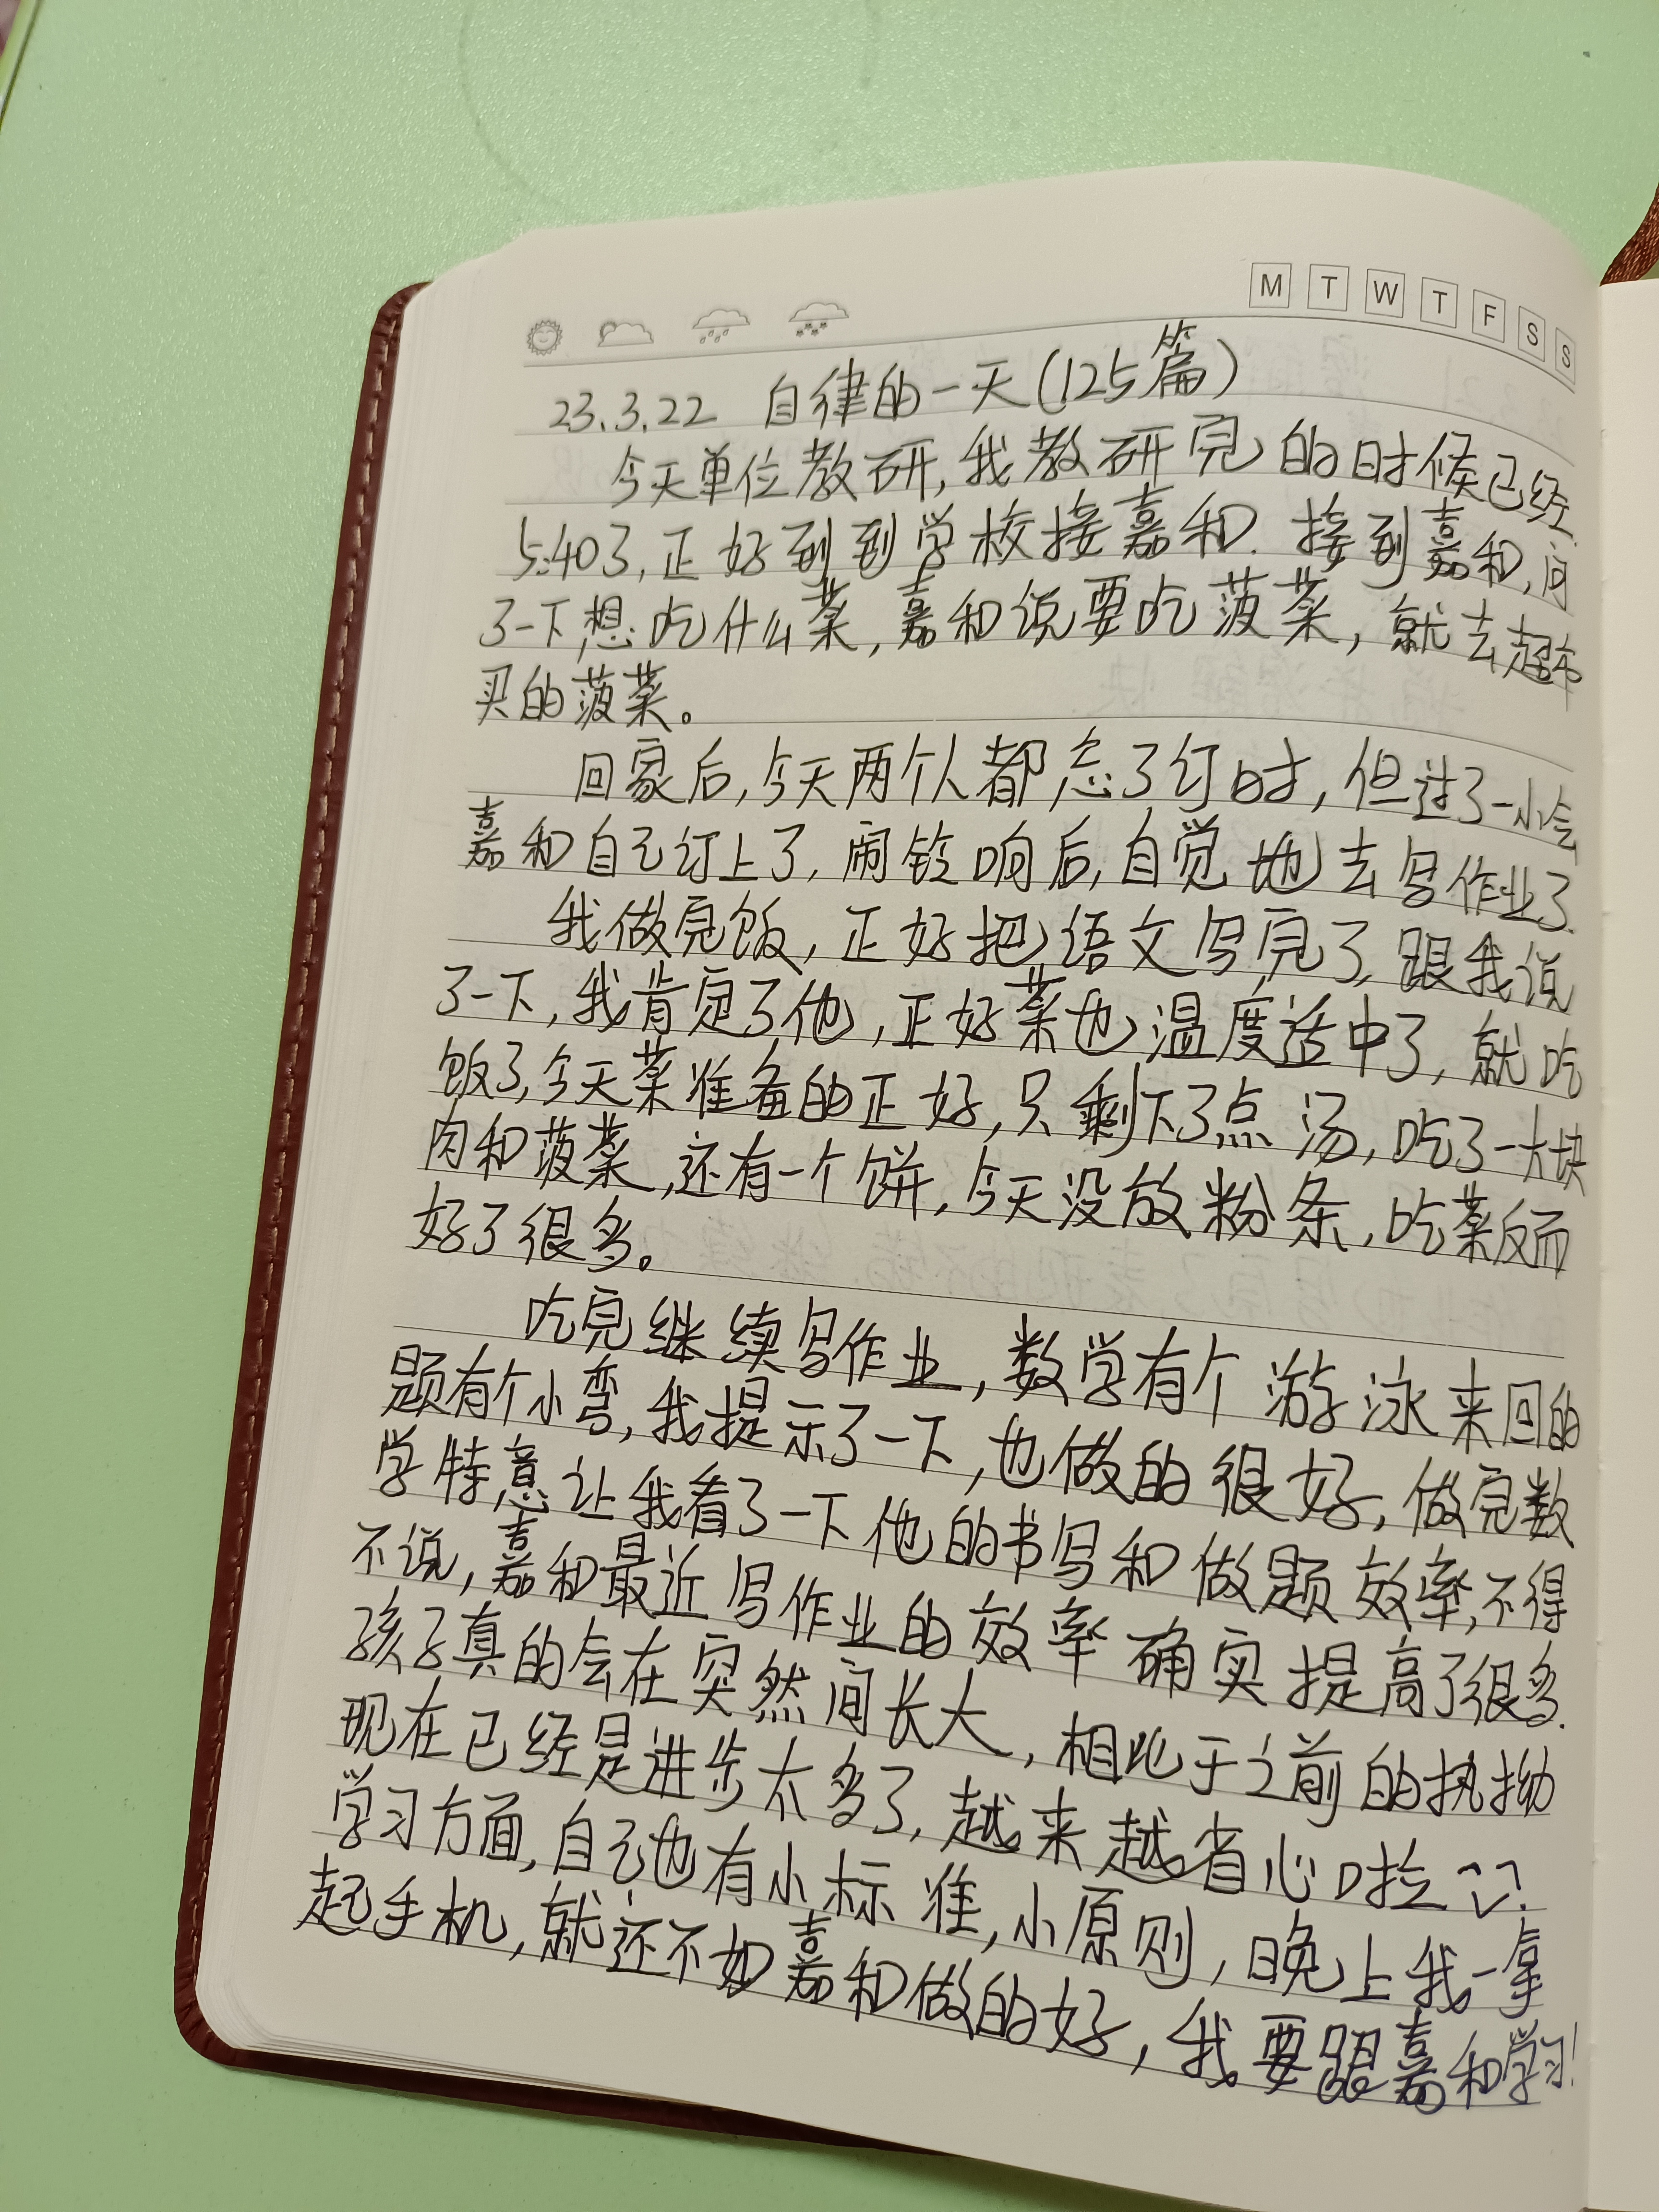 M T W T F S S
23.3.22 自律的一天(125篇)
今天单位教研,我教研完的时候已经
5:40了,正好到到学校接嘉和.接到嘉和,问
了一下,想吃什么菜,嘉和说要吃菠菜,就去超市
买的菠菜。
回家后,今天两个人都忘了订时,但过了一小会
嘉和自己订上了,闹铃响后,自觉地去写作业了.
我做完饭,正好把语文写完了,跟我说
了一下,我肯定了他,正好菜也温度适中了,就吃
饭了,今天菜准备的正好,只剩下了点汤,吃了一大块
肉和菠菜,还有一个饼,今天没放粉条,吃菜反而
好了很多。
吃完继续写作业,数学有个游泳来回的
题有个小弯,我提示了一下,也做的很好,做完数
学特意让我看了一下他的书写和做题效率,不得
不说,嘉和最近写作业的效率确实提高了很多.
孩子真的会在突然间长大,相比于之前的执拗
现在已经是进步太多了,越来越省心啦
学习方面,自己也有小标准,小原则,晚上我一拿
起手机,就还不如嘉和做的好,我要跟嘉和学习!